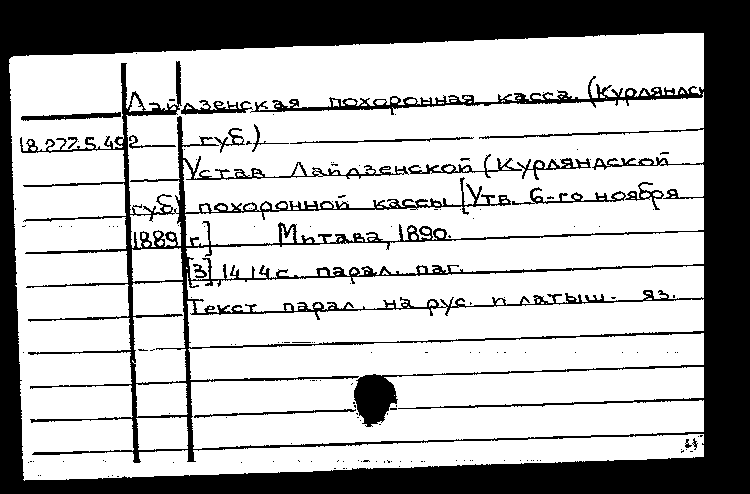 Лайдзенская похоронная касса. (Курляндск
18.277.5.492 губ.)
Устав Лайдзенской (Курляндской
губ.) похоронной кассы [Утв. 6-го ноября
1889 г.] Митава, 1890.
[3], 14, 14 с. парал. паг.
Текст парал. на рус. и латыш. яз.